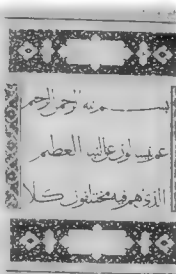 بسم الله الرحمن الرحيم
عم يتساءلون عن النبإ العظيم
الذي هم فيه مختلفون كلا